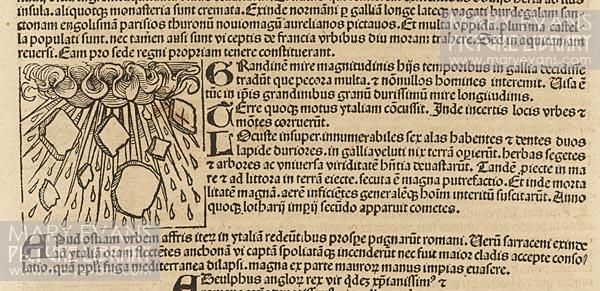 insula. aliquotq̄ monasteria sunt cremata. Exinde normāni p̱ galliā longe lateq̄ vagati burdegalam san
ctonam engolismam parisios thuronū nouiomagū aurelianos pictauos. Et multa oppida. plurima castel
la populati sunt. nec tamen ausi sunt vi ceptis de francia vrbibus diu moram trahere. Sed in aquitaniam
reuersi. Eam pro sede regni propriam tenere constituerant.
GRandinem mire magnitudinis hijs temporibus in gallia decidisse
tradūt que pecora multa. ⁊ nōnullos homines interemit. Uisa ē
tūc in ip̄is grandinibus granū durissimū mire longiudinis.
TErre quoq̄ motus ytaliam cōcussit. Inde incertis locis vrbes ⁊
mōtes corruerūt.
LOcuste insuper innumerabiles sex alas habentes ⁊ dentes duos
lapide duriores. in gallia veluti nix terrā opierūt. herbas segetes
⁊ arbores ac vniuersa viriditatē hn̄tia deuastarūt. Tandē piecte in ma
re ⁊ ad littora in terrā eiecte. secuta ē magna putrefactio. Et inde morta
litatē magnā. aerē inficiētes generaleq̄ hoīm interitū suscitarūt. Anno
quoq̄ lotharij imp̱ij secūdo apparuit cometes.
APud ostiam vrbem affris iteꝝ in ytaliā redeūtibus prosp̱e pugnarūt romani. Uerū sarraceni exinde
ad ytalie oram flectētes anchonā vi captā spoliataq̄ incenderūt nec fuit maior cladis accepte conso
latio. quā pp̄ti fuga mediterranea dilapsi. magna ex parte mauroꝝ manus impias euasere.
ADeulphus angloꝝ rex vir q̄dez xp̄ianissim⁹ ⁊
MARY EVANS
www.maryevans.com